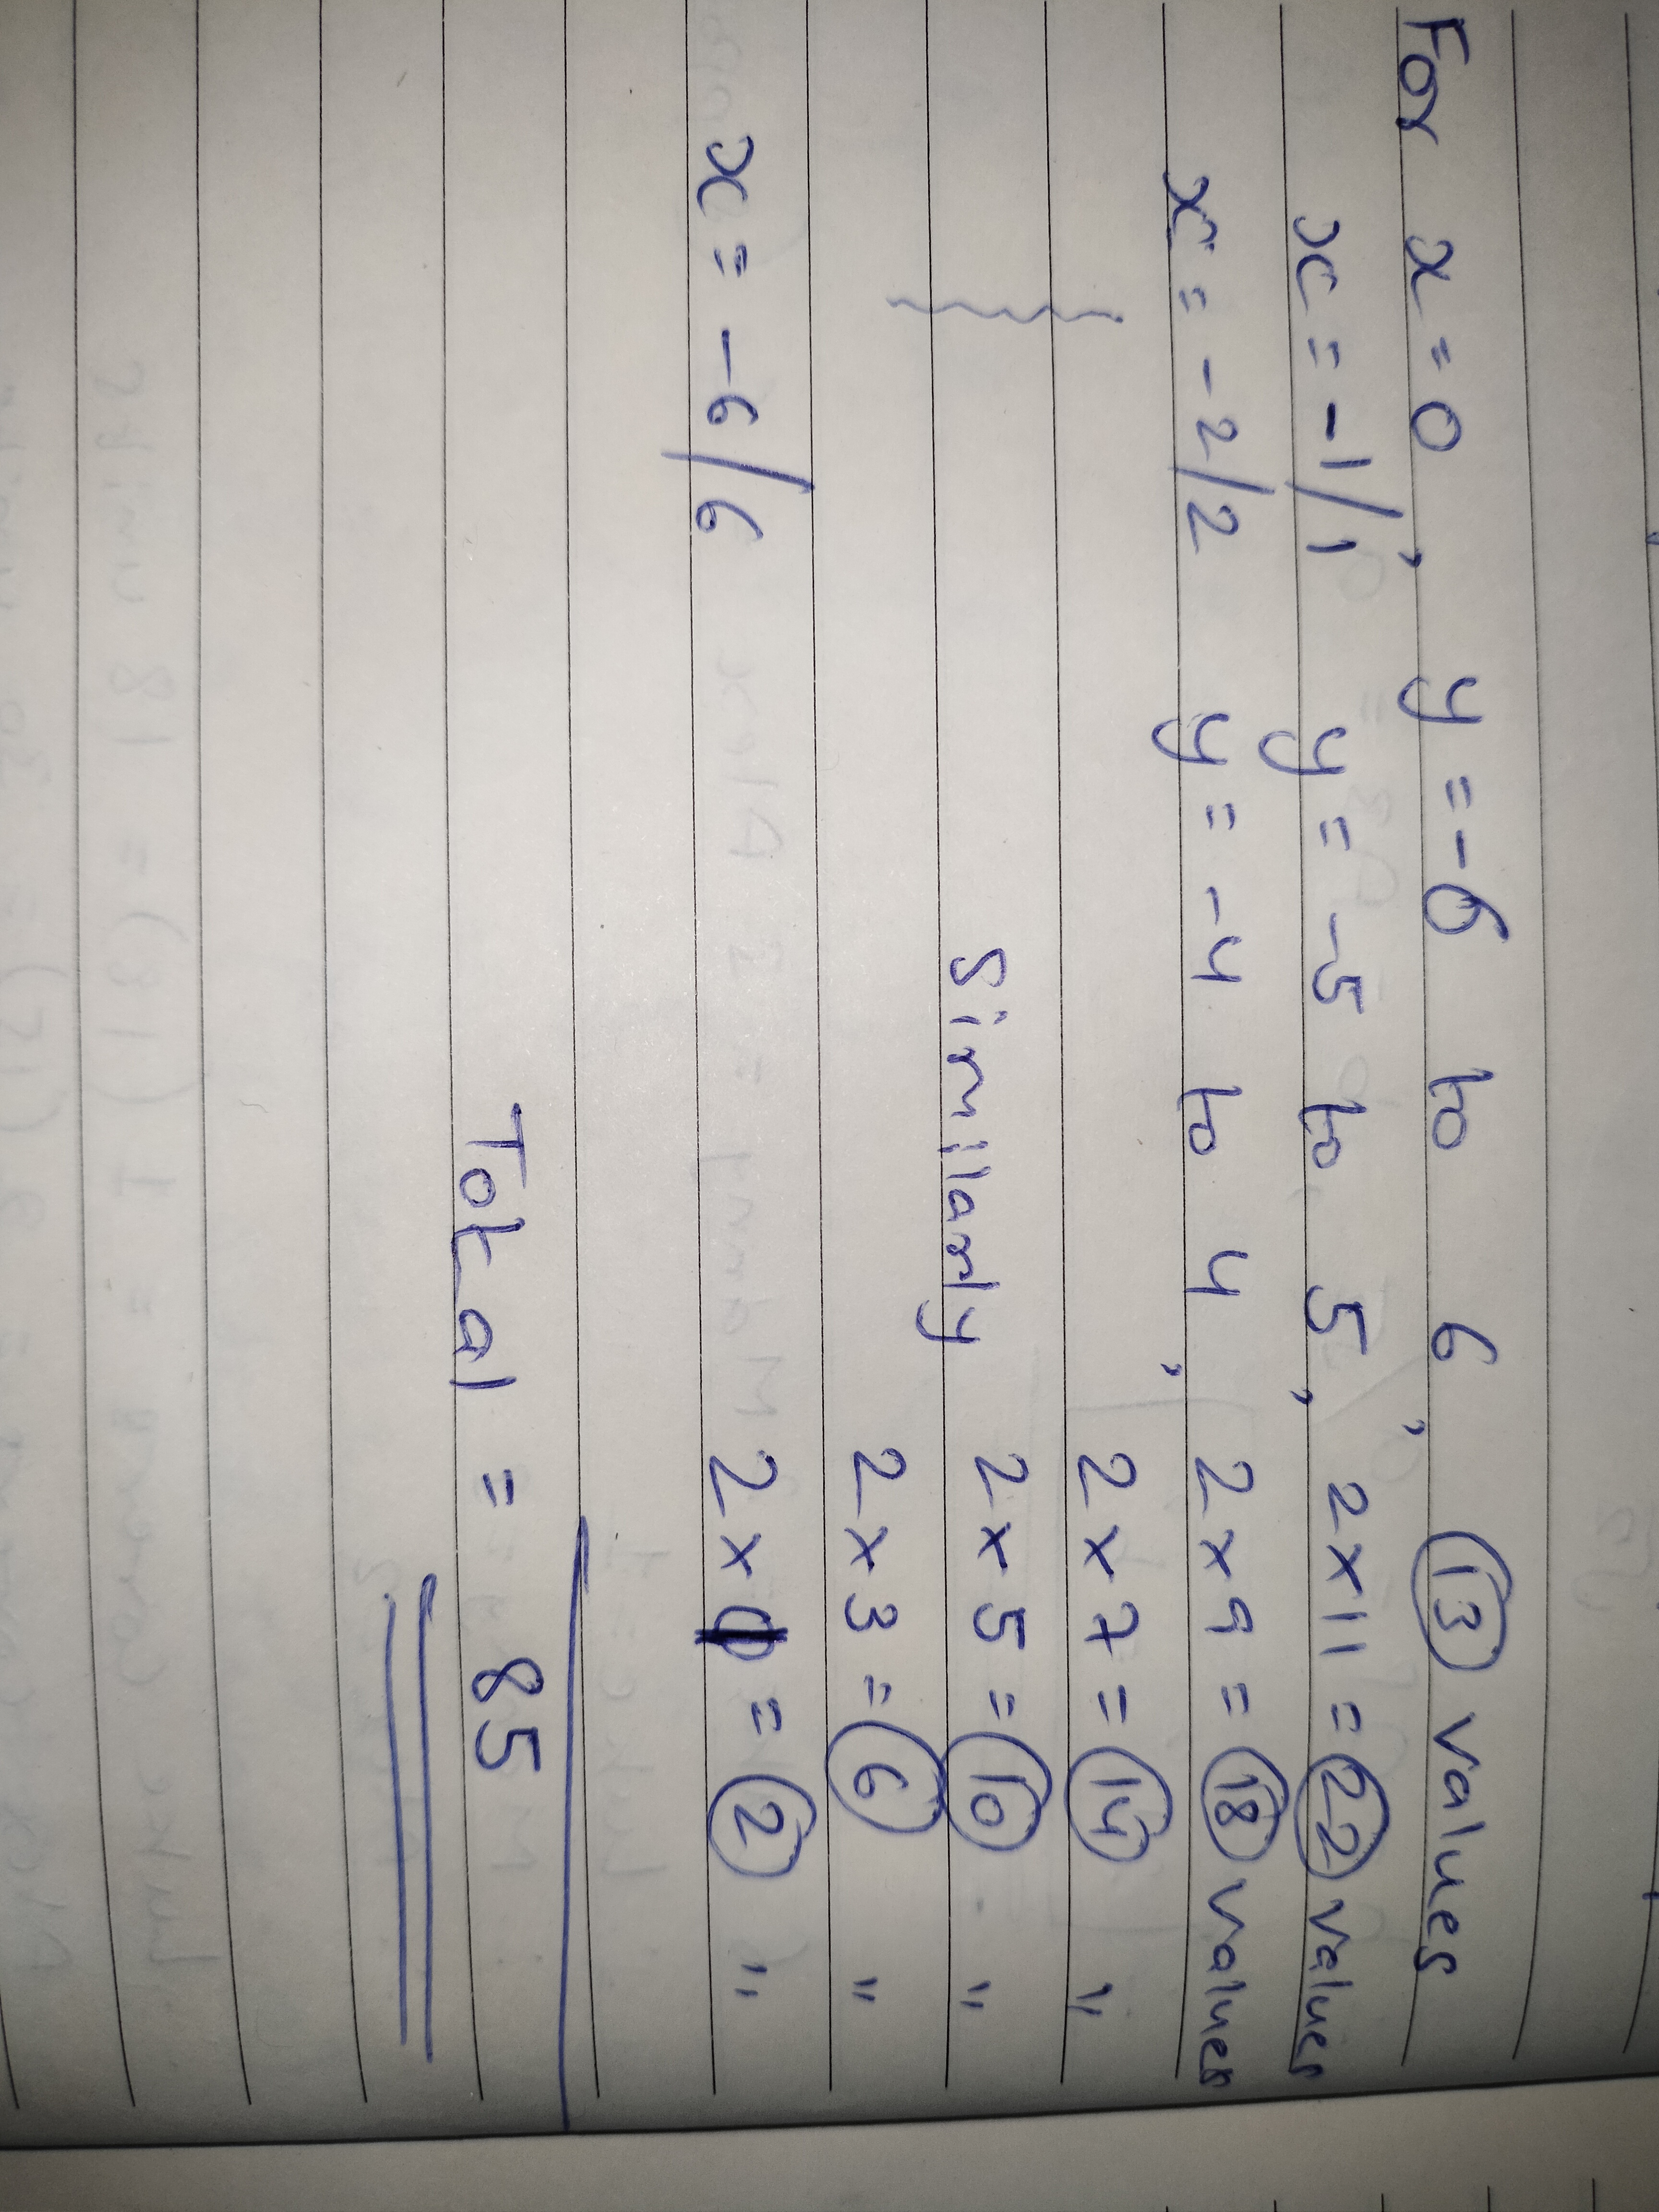 For x = 0, y = -6 to 6, 13 values
x = -1/1 y = -5 to 5, 2x11 = 22 values
x = -2/2 y = -4 to 4, 2x9 = 18 values
2x7 = 14 "
Simillarly 2x5 = 10 "
2x3 = 6 "
x = -6/6 2x1 = 2 "
Total = 85